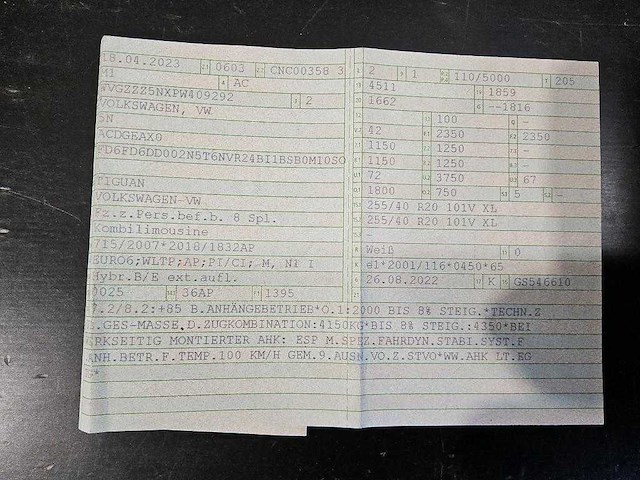 18.04.2023 0603 CNC00358 3
M1 AC
WVGZZZ5NXPW409292 2
VOLKSWAGEN, VW
5N
ACDGEAX0
FD6FD6DD002N5T6NVR24BI1BSB0M10SO
TIGUAN
VOLKSWAGEN-VW
Fz.z.Pers.bef.b. 8 Spl.
Kombilimousine
715/2007*2018/1832AP
EURO6;WLTP;AP;PI/CI; M, N1 I
Hybr.B/E ext.aufl.
0025 36AP 1395
2 1 110/5000 205
4511 1859
1662 --1816
100 -
42 2350 2350
1150 1250 -
1150 1250 -
72 3750 67
1800 750 5 -
255/40 R20 101V XL
255/40 R20 101V XL
-
Weiß 0
e1*2001/116*0450*65
26.08.2022 K GS546610
7.2/8.2:+85 B.ANHÄNGEBETRIEB*O.1:2000 BIS 8% STEIG.*TECHN.Z
.GES-MASSE.D.ZUGKOMBINATION:4150KG*BIS 8% STEIG.:4350*BEI
ERKSEITIG MONTIERTER AHK: ESP M.SPEZ.FAHRDYN.STABI.SYST.F
ANH.BETR.F.TEMP.100 KM/H GEM.9.AUSN.VO.Z.STVO*WW.AHK LT.EG
*